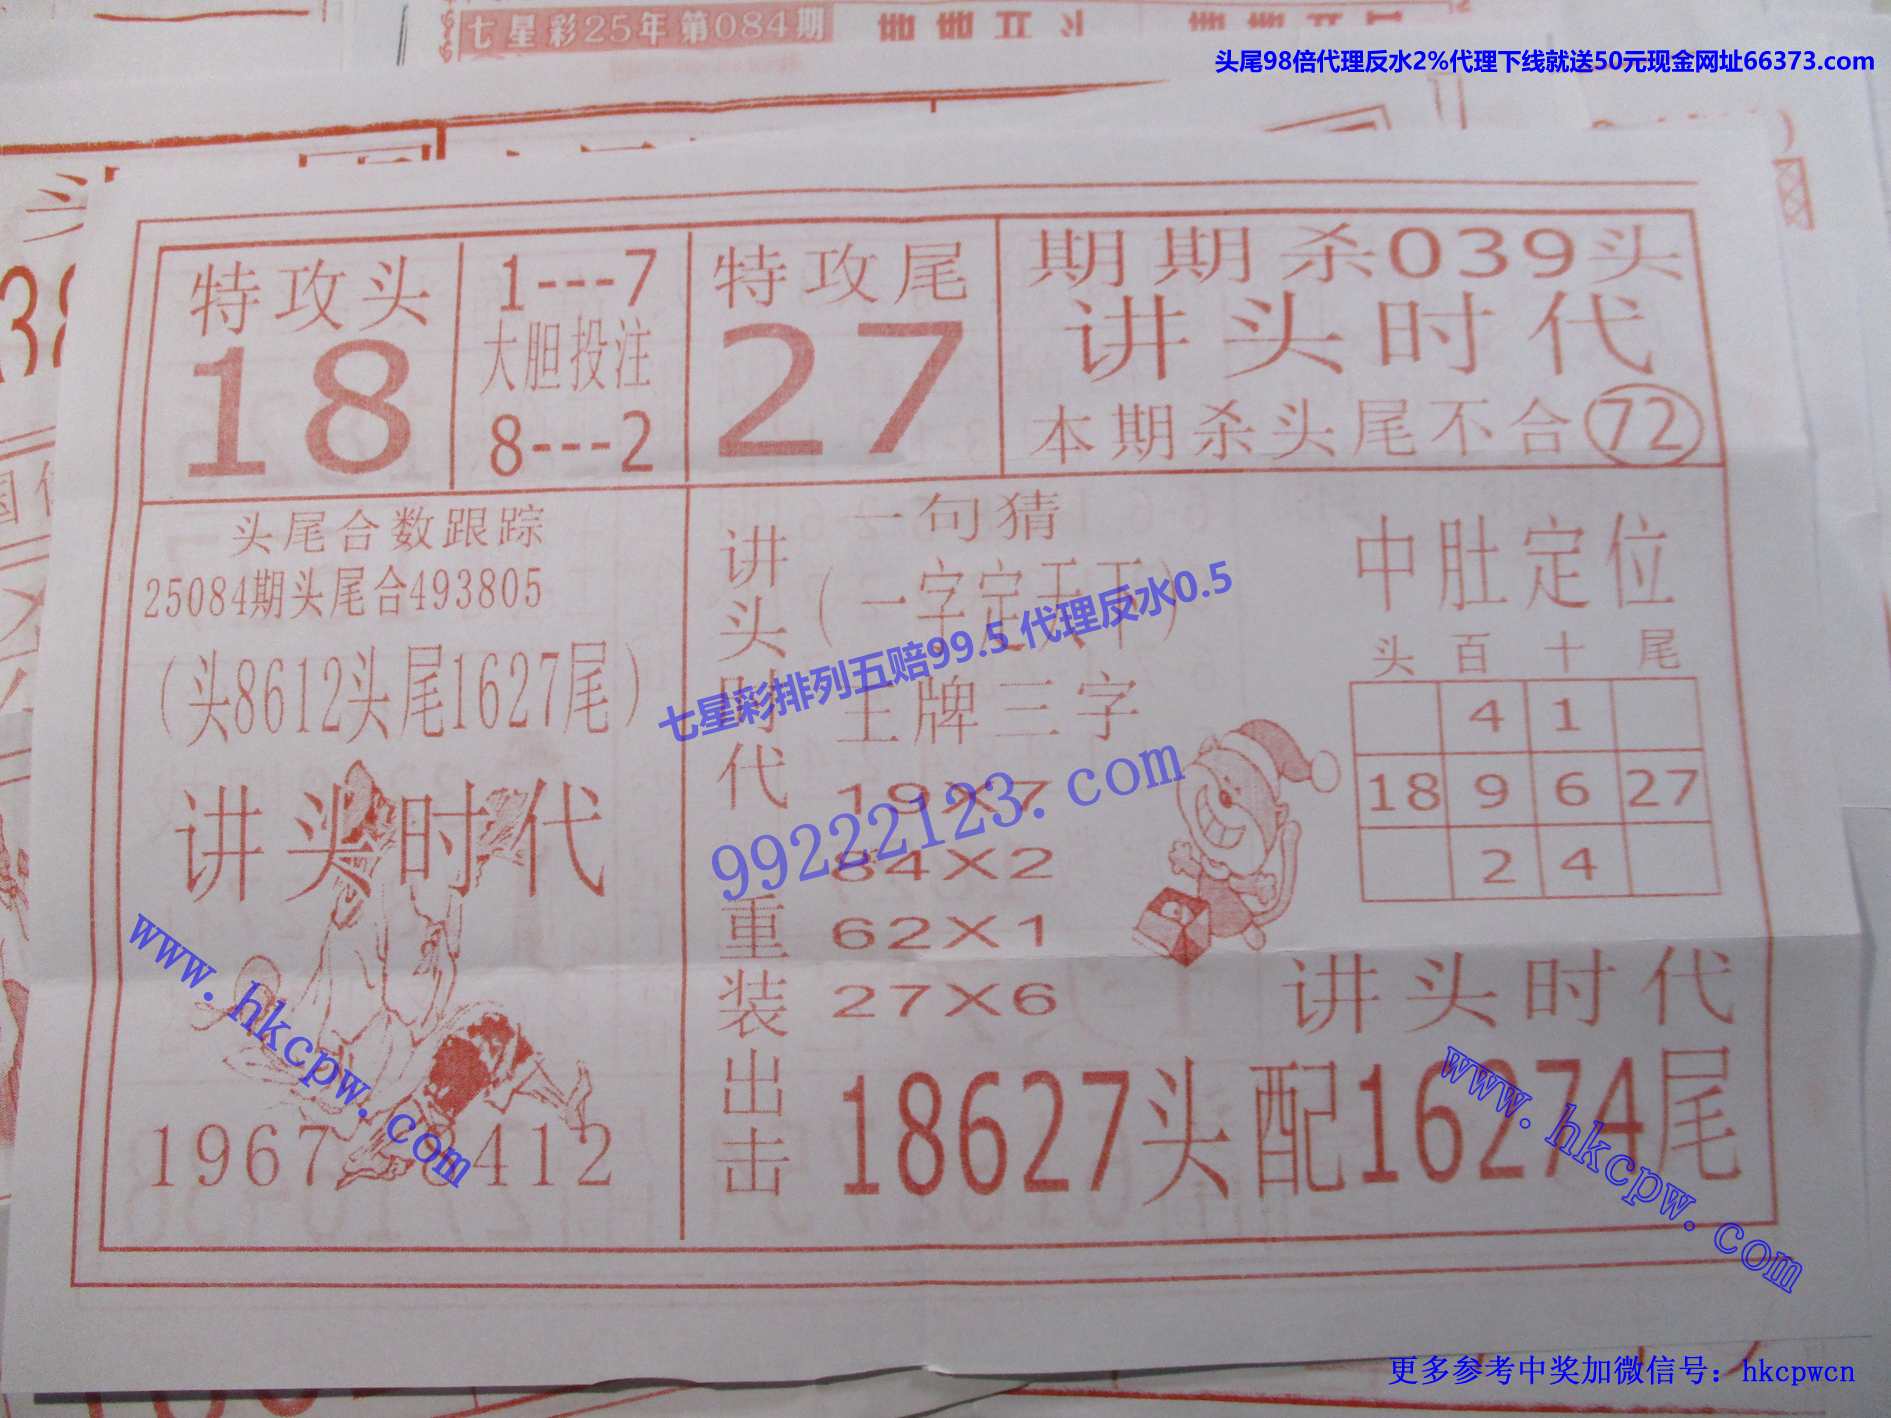 七星彩25年第084期
头尾98倍代理反水2%代理下线就送50元现金网址66373.com
特攻头
18
1---7
大胆投注
8---2
特攻尾
27
期期杀039头
讲头时代
本期杀头尾不合72
头尾合数跟踪
25084期头尾合493805
(头8612头尾1627尾)
讲头时代
1967 8412
讲头时代重装出击
一句猜
(一字定天下)
王牌三字
19X7
84X2
62X1
27X6
中肚定位
头 百 十 尾
4 1
18 9 6 27
2 4
讲头时代
18627头配16274尾
七星彩排列五赔99.5 代理反水0.5
99222123.com
www.hkcpw.com
www.hkcpw.com
更多参考中奖加微信号：hkcpwcn